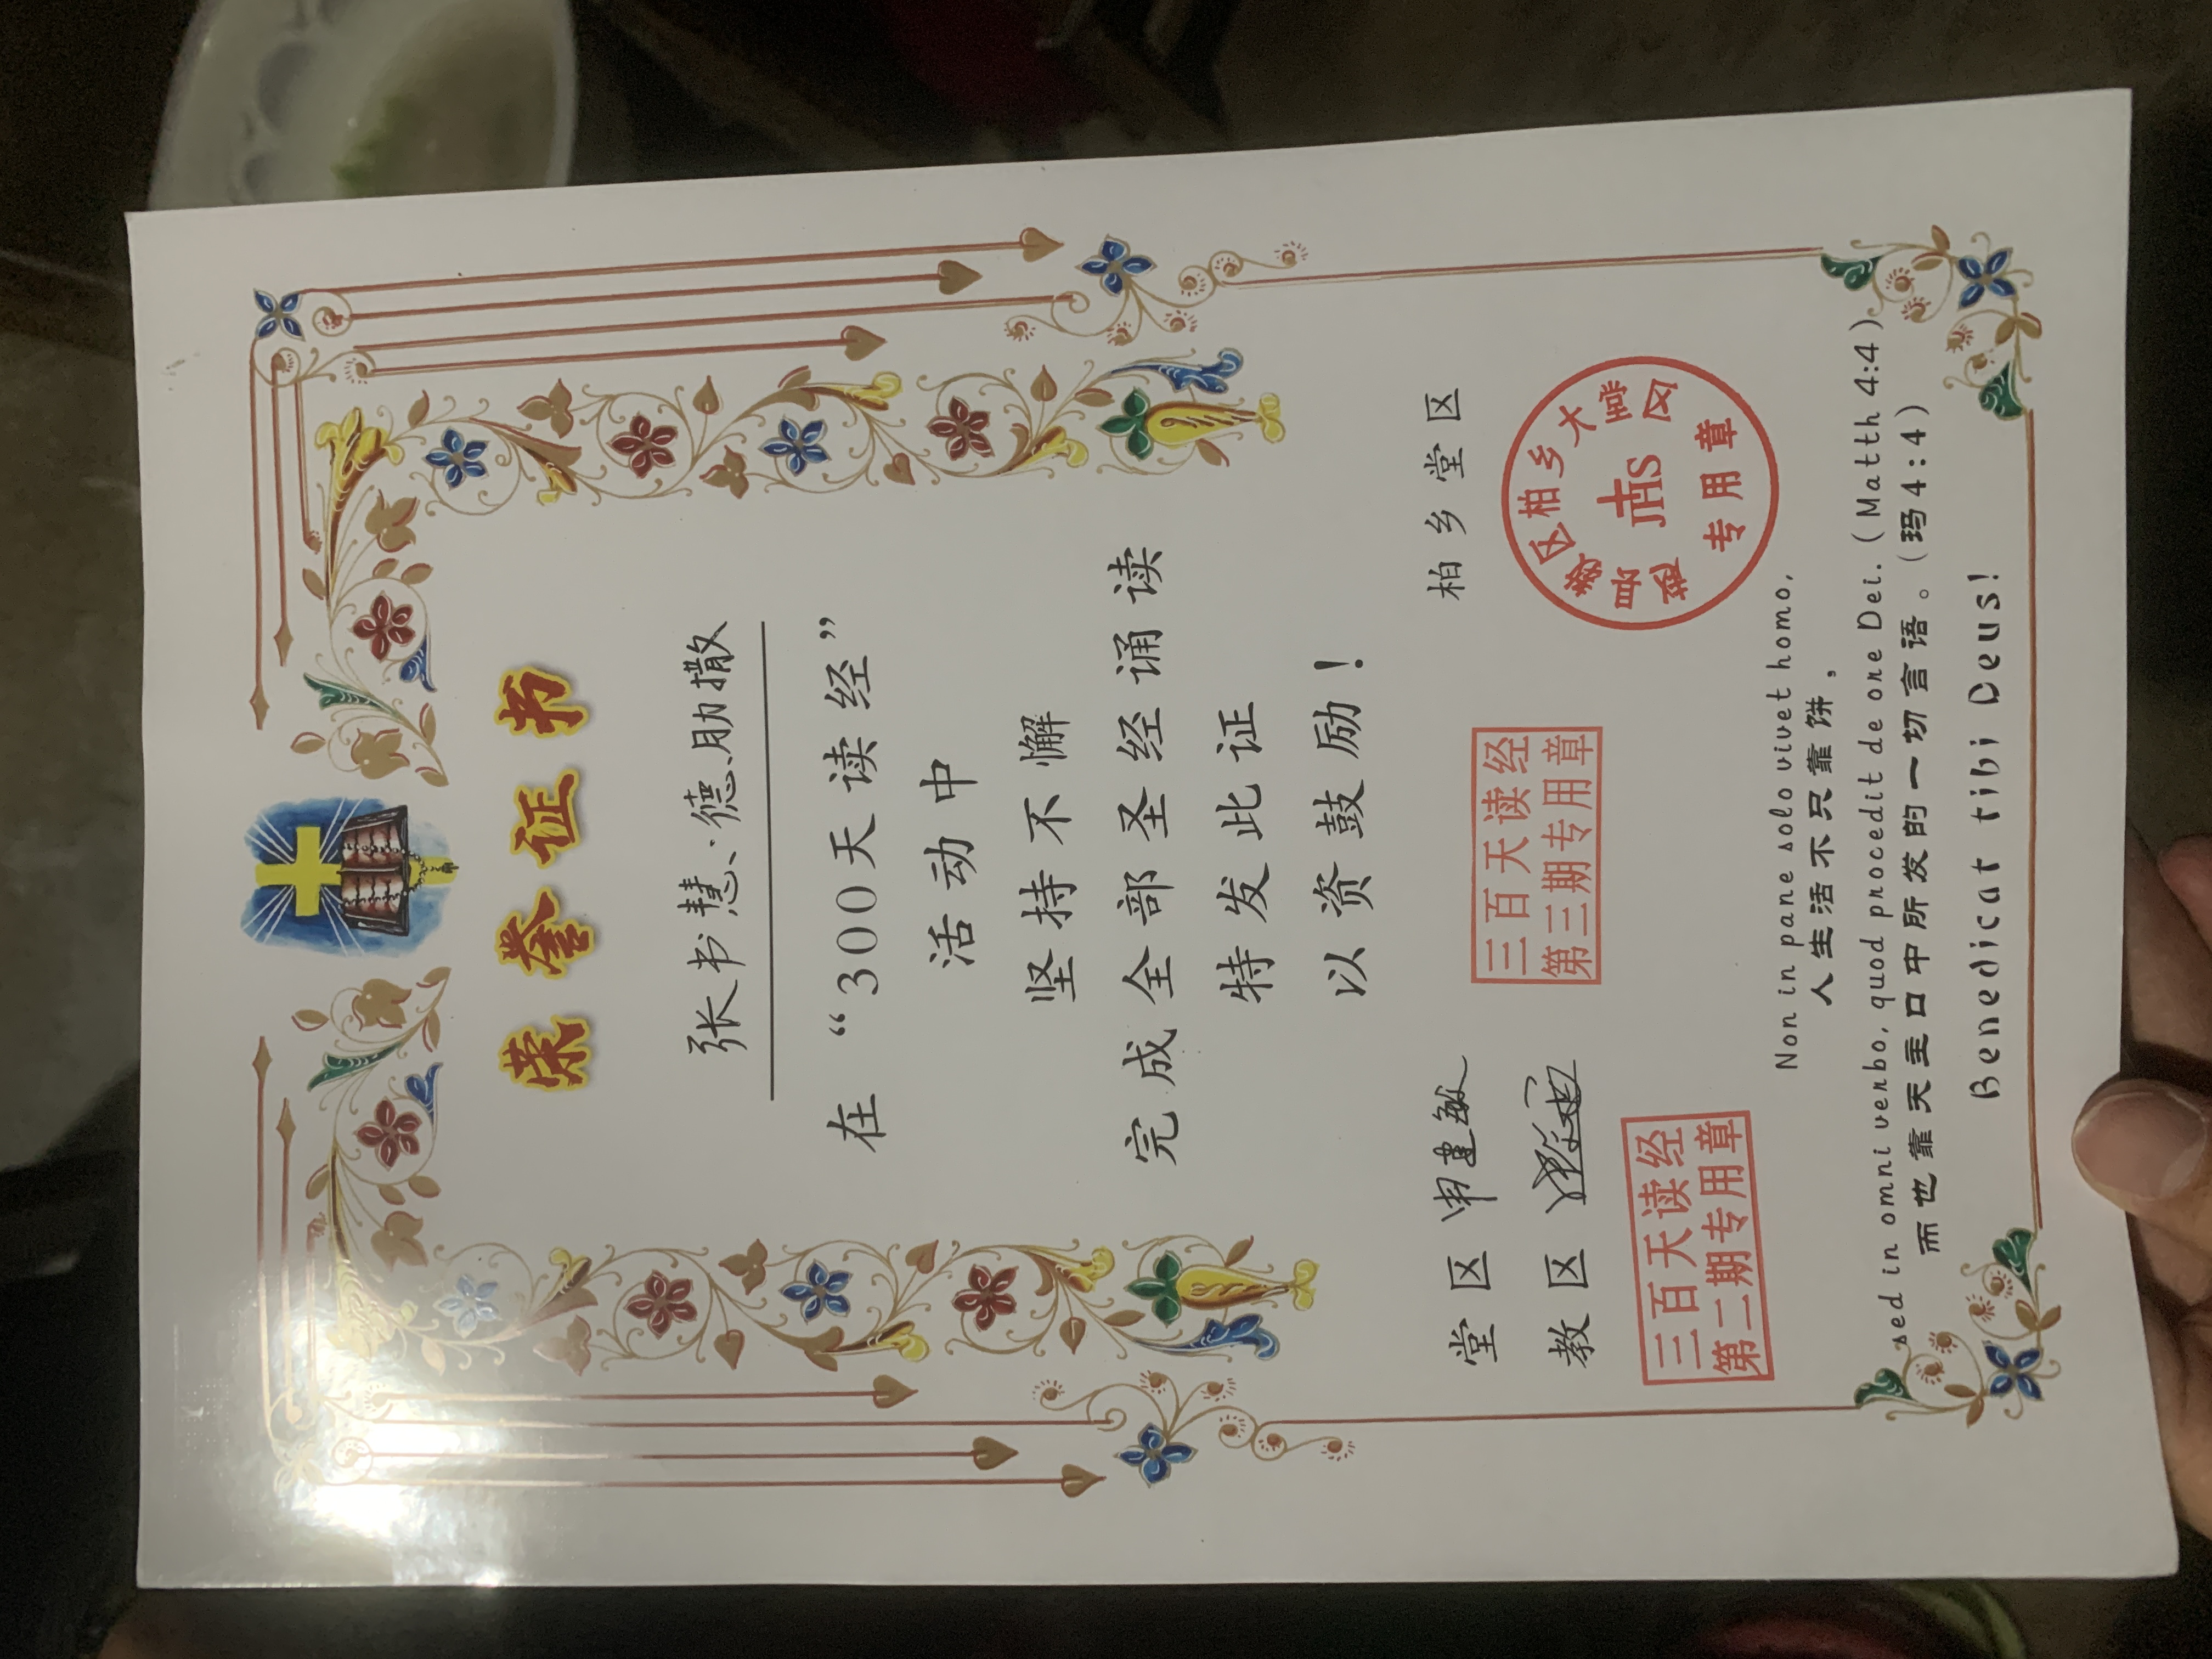 荣誉证书
张书慧·德肋撒
在“300天读经”
活动中
坚持不懈
完成全部圣经诵读
特发此证
以资鼓励！
堂区 申建敏
教区
柏乡堂区
三百天读经
第三期专用章
三百天读经
第二期专用章
赵县教区柏乡大堂区
JHS
专用章
Non in pane solo vivet homo,
人生活不只靠饼，
sed in omni verbo, quod procedit de ore Dei. (Matth 4:4)
而也靠天主口中所发的一切言语。（玛4:4）
Benedicat tibi Deus!